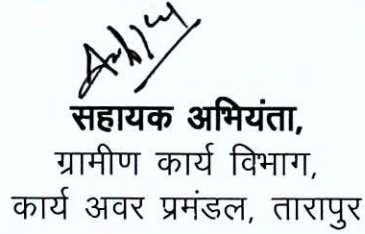 सहायक अभियंता,
ग्रामीण कार्य विभाग,
कार्य अवर प्रमंडल, तारापुर